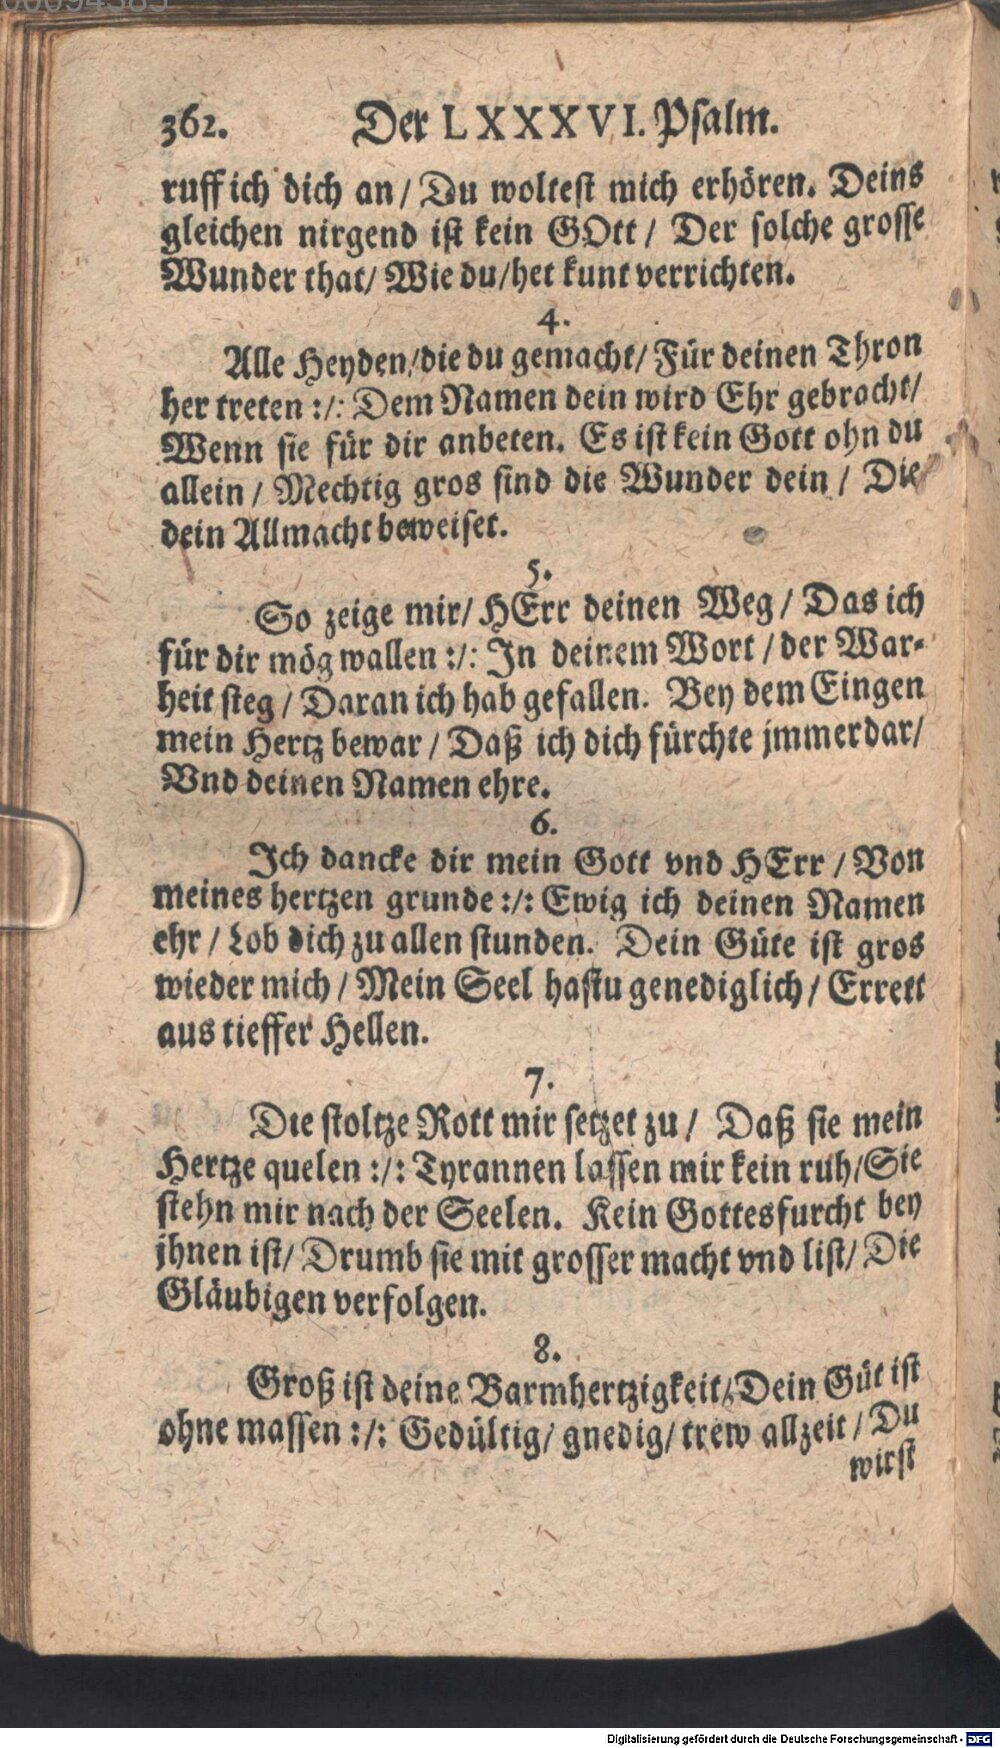 00094385
362. Der LXXXVI. Psalm.
ruff ich dich an / Du woltest mich erhören. Deins
gleichen nirgend ist kein GOtt / Der solche grosse
Wunder that / Wie du / het kunt verrichten.
4.
Alle Heyden / die du gemacht / Für deinen Thron
her treten :/: Dem Namen dein wird Ehr gebracht /
Wenn sie für dir anbeten. Es ist kein Gott ohn du
allein / Mechtig gros sind die Wunder dein / Die
dein Allmacht beweiset.
5.
So zeige mir / HErr deinen Weg / Das ich
für dir mög wallen :/: In deinem Wort / der War-
heit steg / Daran ich hab gefallen. Bey dem Eingen
mein Hertz bewar / Daß ich dich fürchte jmmerdar /
Vnd deinen Namen ehre.
6.
Ich dancke dir mein Gott vnd HErr / Von
meines hertzen grunde :/: Ewig ich deinen Namen
ehr / Lob dich zu allen stunden. Dein Güte ist gros
wieder mich / Mein Seel hastu genediglich / Errett
aus tieffer Hellen.
7.
Die stoltze Rott mir setzet zu / Daß sie mein
Hertze quelen :/: Tyrannen lassen mir kein ruh / Sie
stehn mir nach der Seelen. Kein Gottesfurcht bey
jhnen ist / Drumb sie mit grosser macht vnd list / Die
Gläubigen verfolgen.
8.
Groß ist deine Barmhertzigkeit / Dein Güt ist
ohne massen :/: Gedültig / gnedig / trew allzeit / Du
wirst
Digitalisierung gefördert durch die Deutsche Forschungsgemeinschaft - DFG